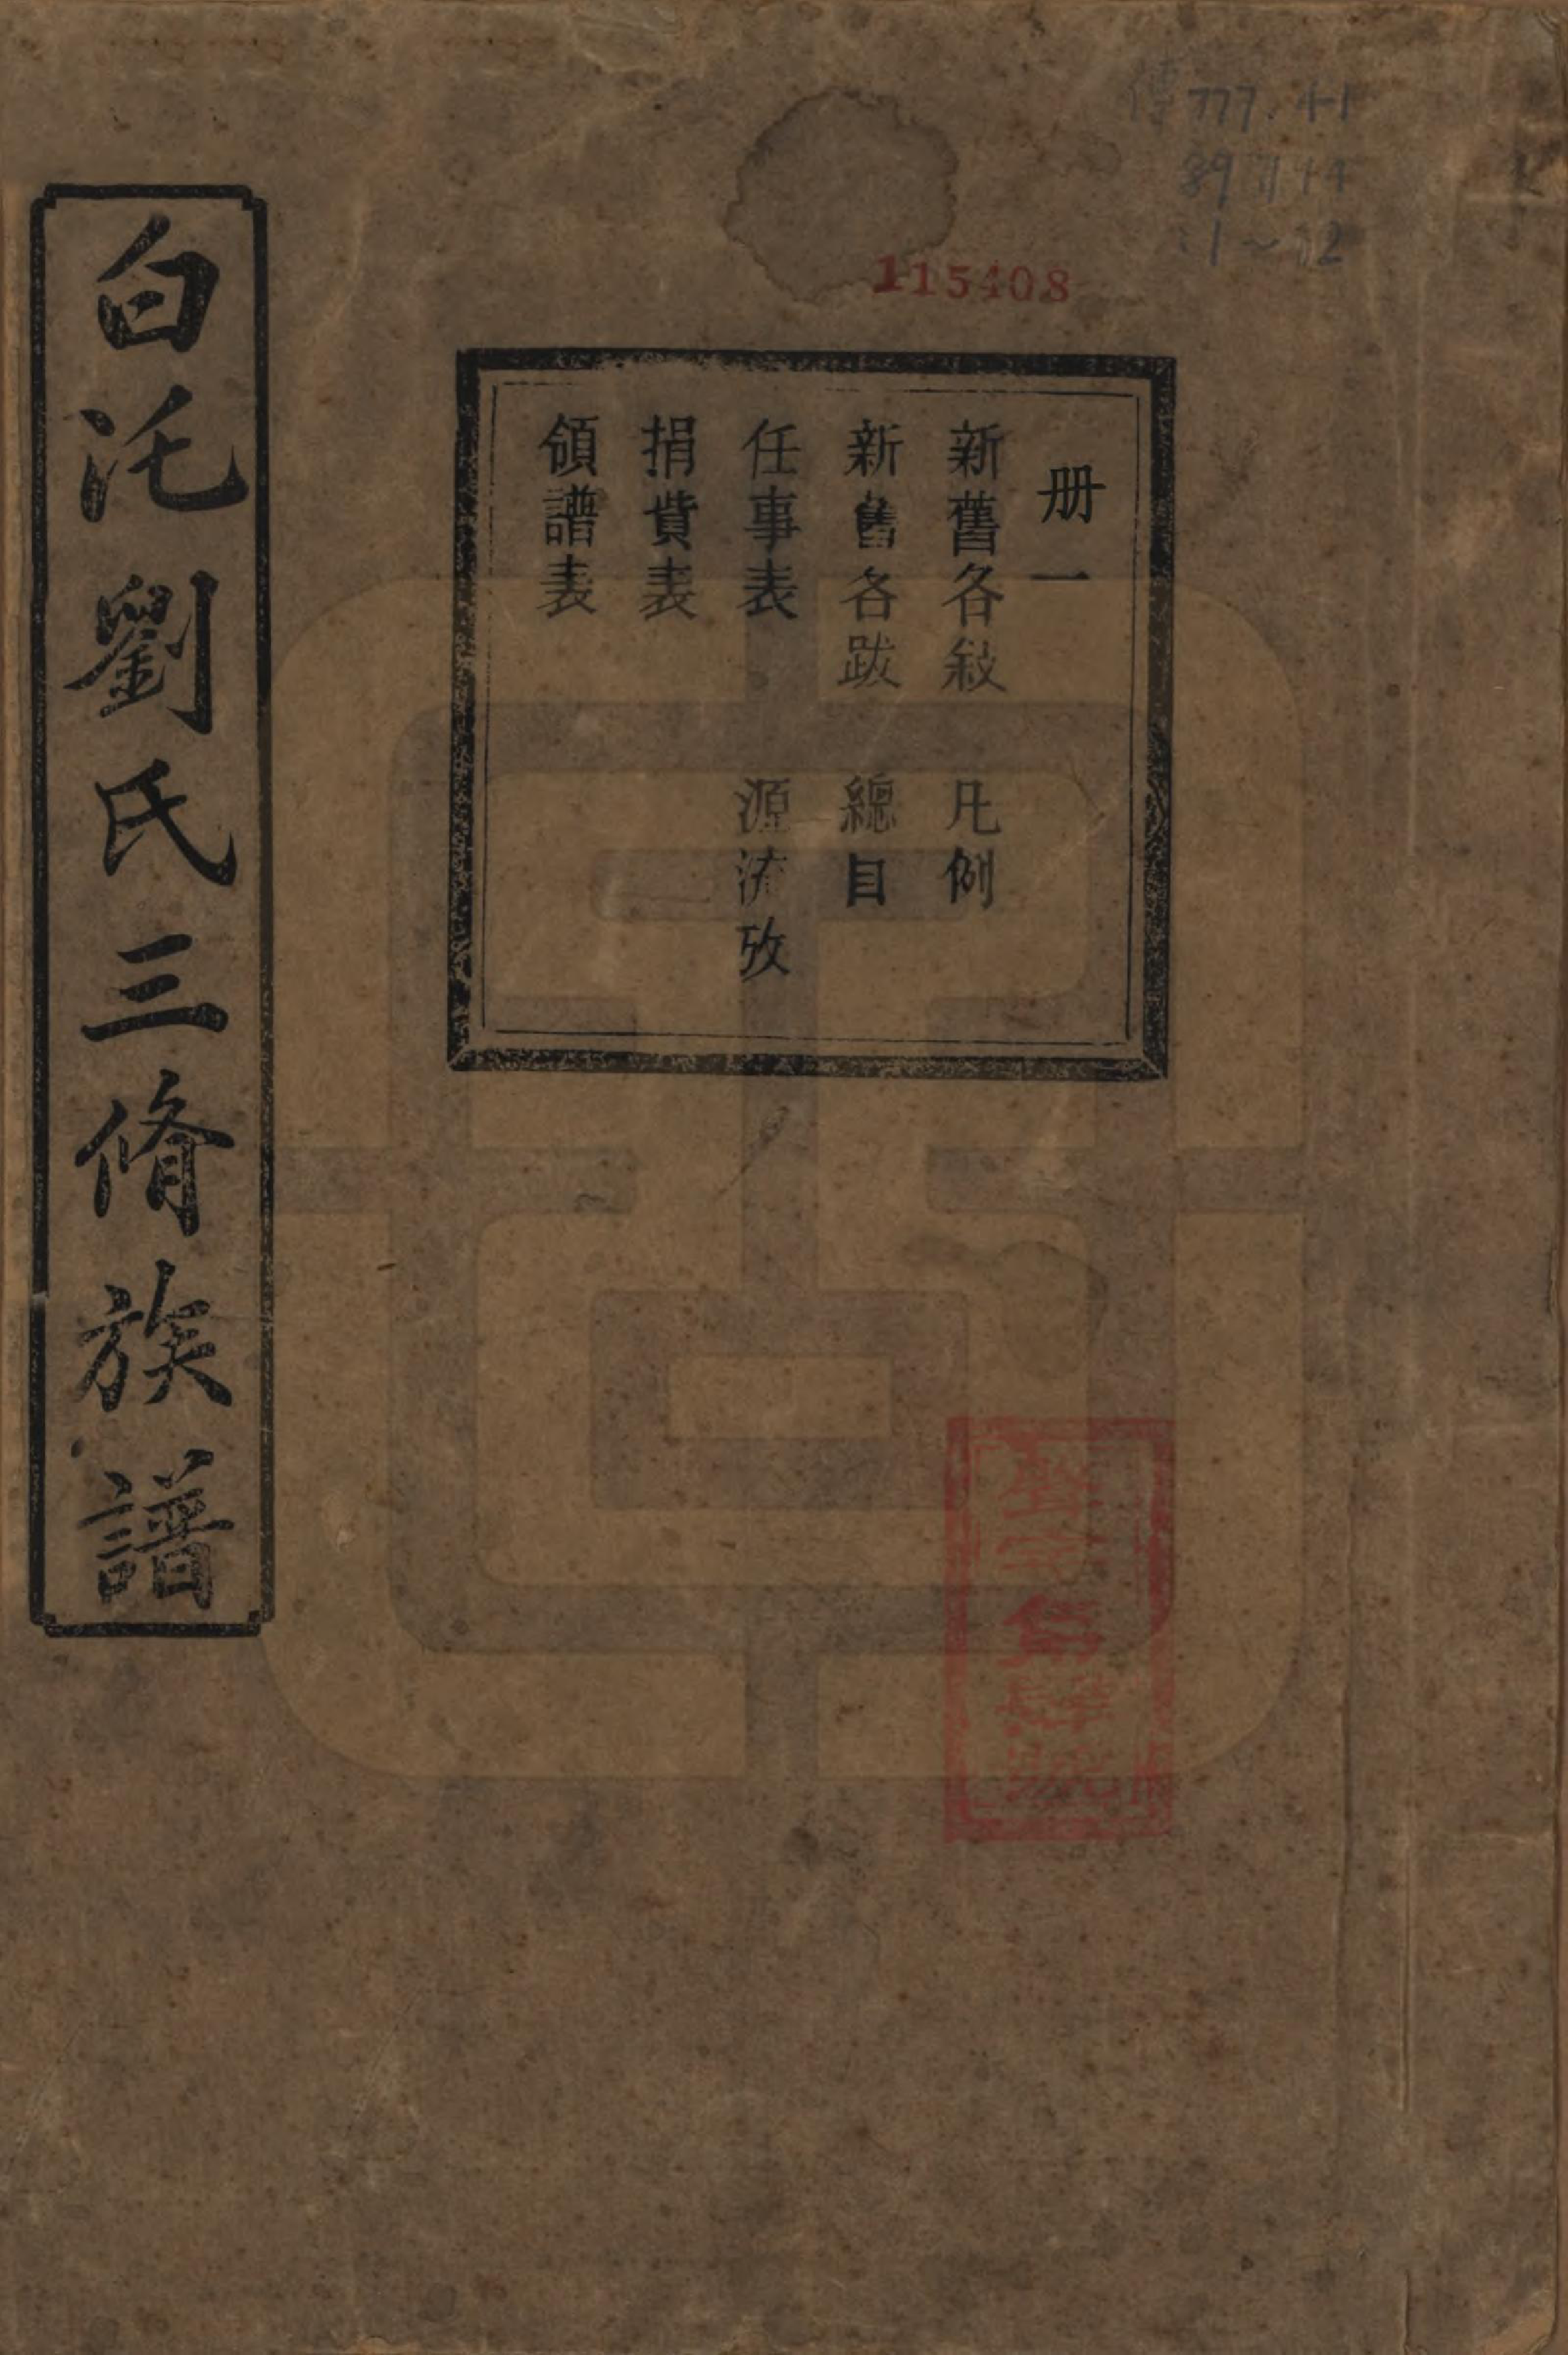 傳 777.41
115408
白汑劉氏三脩族譜
册一
新舊各敍 凡例
新舊各跋 總目
任事表 源流攷
捐貲表
領譜表